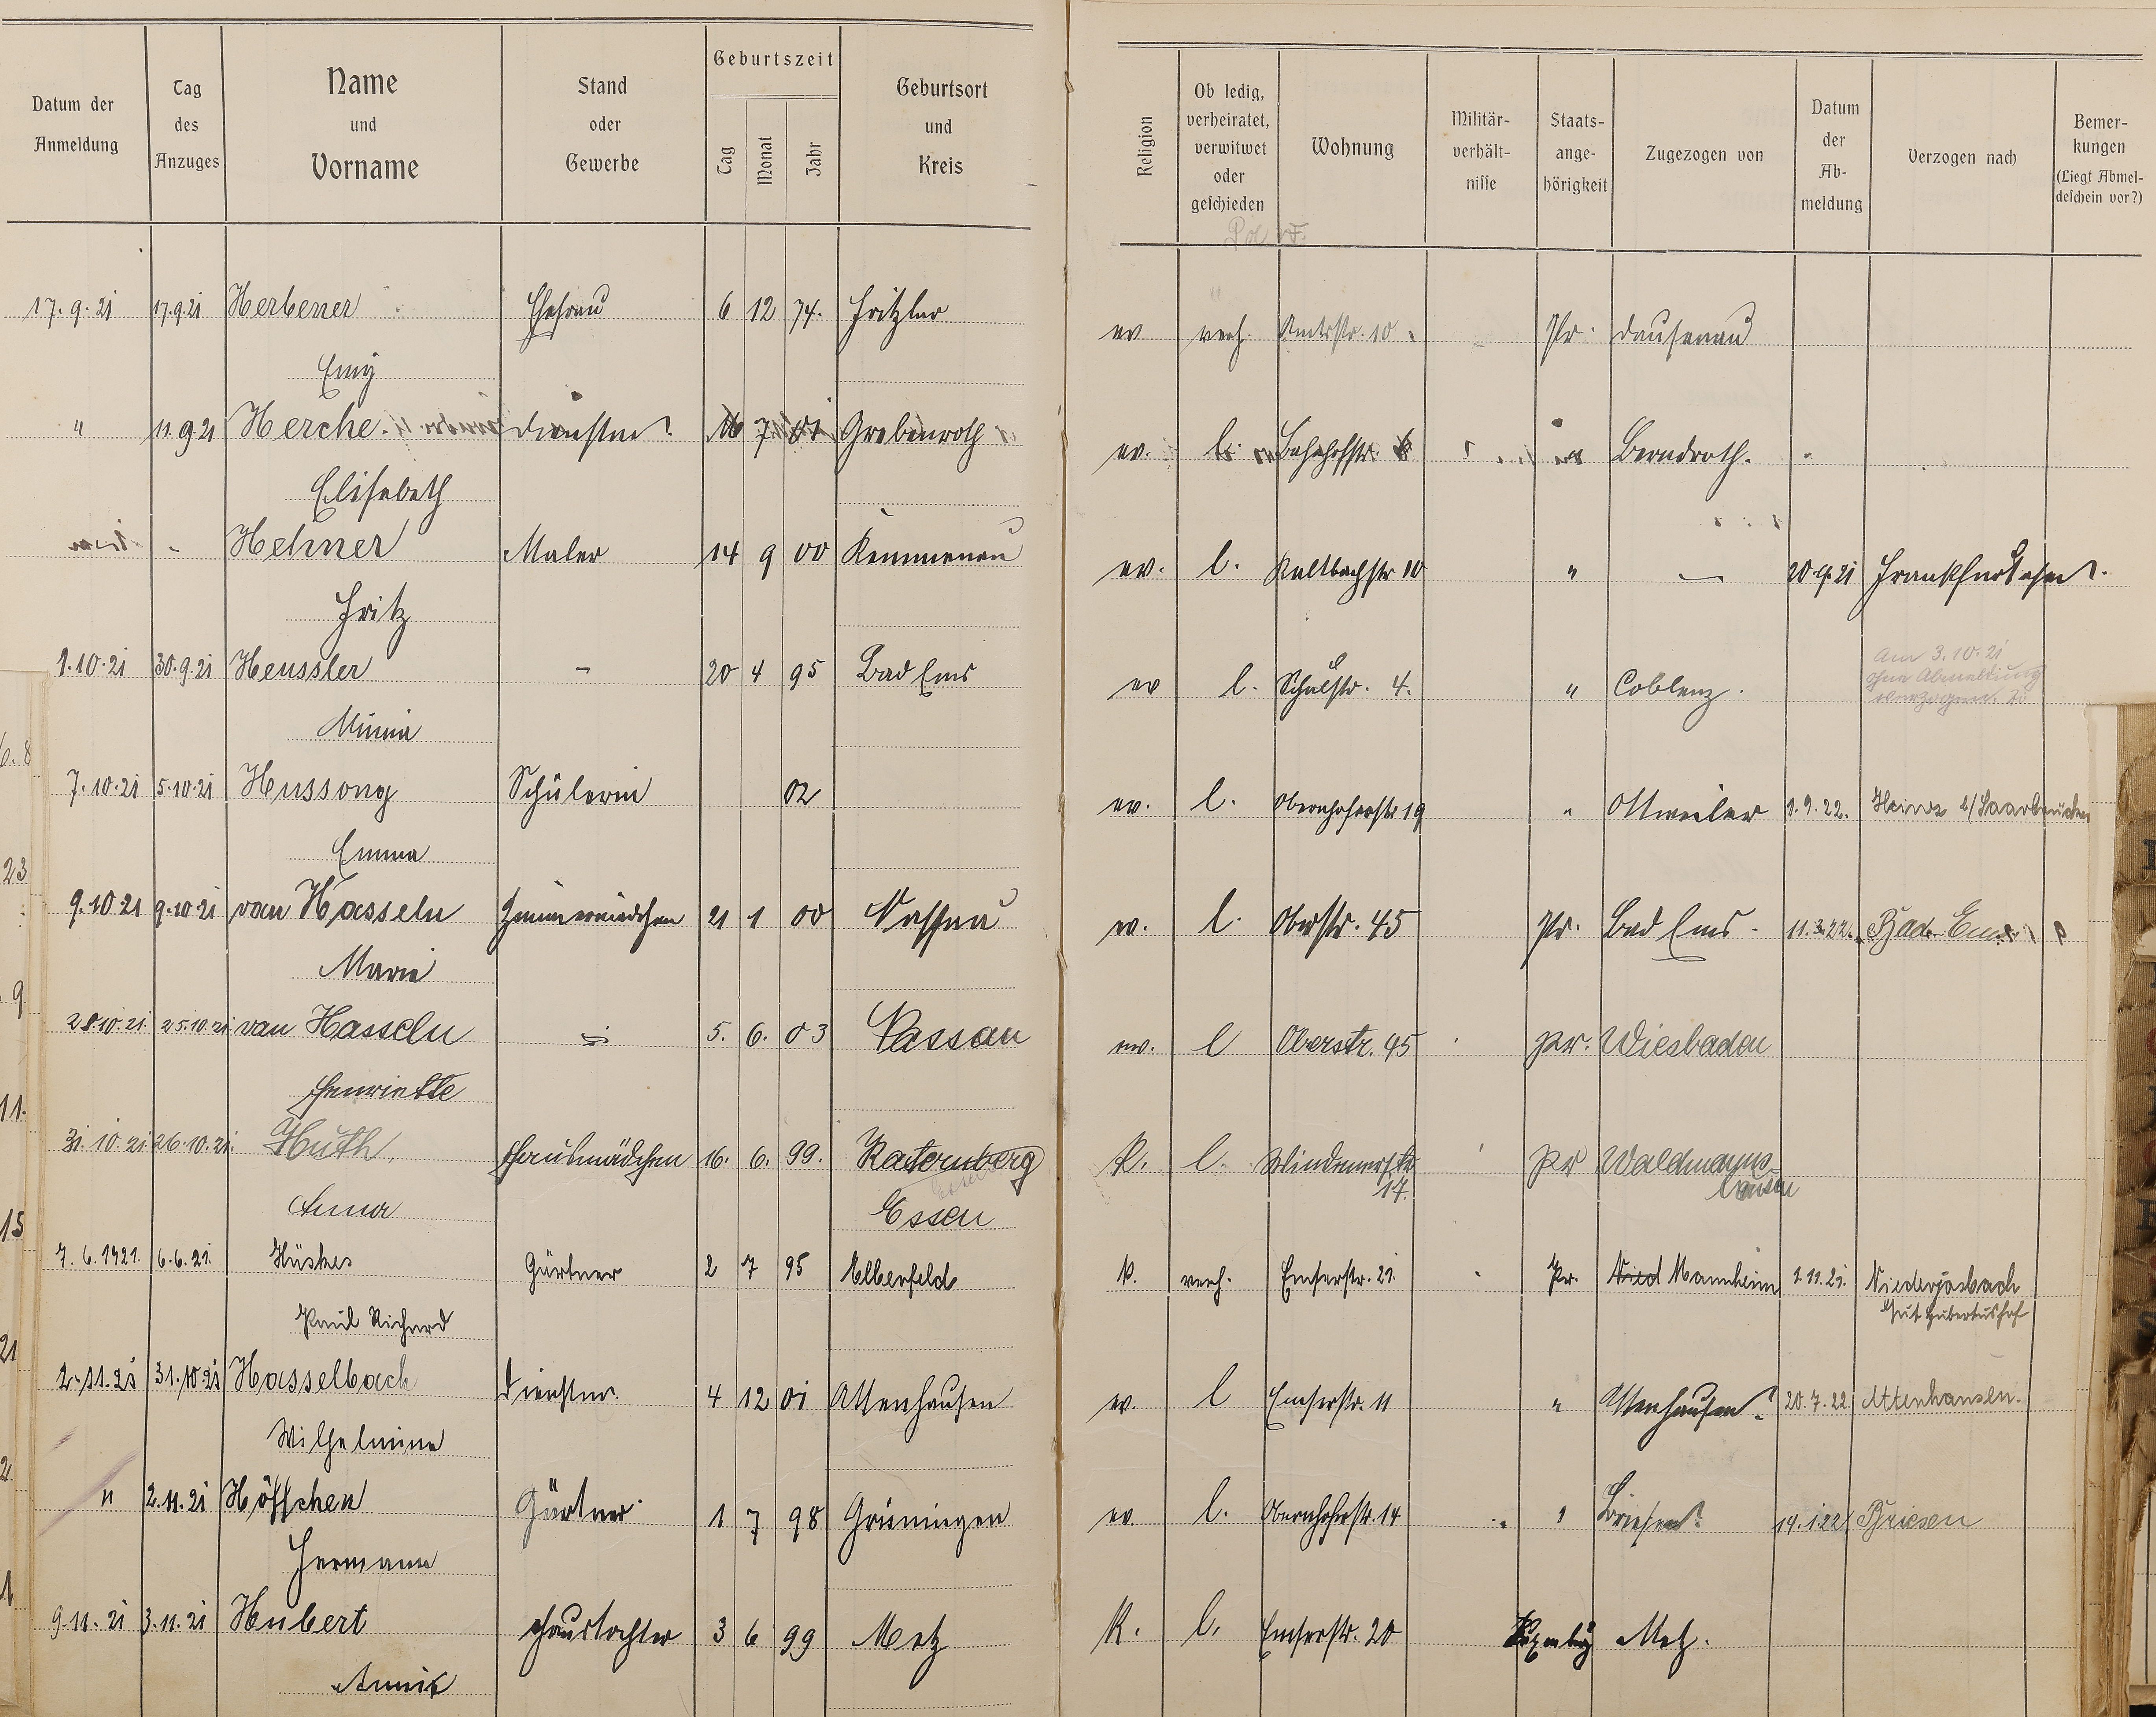 Datum der Anmeldung
Tag des Anzuges
Name und Vorname
Stand oder Gewerbe
Geburtszeit
Tag Monat Jahr
Geburtsort und Kreis
Religion
Ob ledig, verheiratet, verwitwet oder geschieden
Wohnung
Militär-verhält-nisse
Staats-ange-hörigkeit
Zugezogen von
Datum der Ab-meldung
Verzogen nach
Bemer-kungen (Liegt Abmel-deschein vor?)
17.9.21 17.9.21 Herbener Ehefrau 6 12 74. Fritzlar ev verh. Amtsstr. 10. Pr. Dausenau
Emy
" 11.9.21 Herche Dienstm. 16 7 01 Grebenroth ev. l. Bahnhofstr. 6 Berndroth.
Elisabeth
Hehner Maler 14 9 00 Kemmenau ev. l. Kaltbachstr 10 " — 20.9.21 Frankfurt
Fritz
1.10.21 30.9.21 Heussler – 20 4 95 Bad Ems ev l. Schulstr. 4. " Coblenz. Am 3.10.21
ohne Abmeldung
verzogen.
Minna
7.10.21 5.10.21 Hussong Schülerin 02 ev. l. Obernhoferstr 19 " Ottweiler 1.9.22. b/Saarbrücken
Emma
9.10.21 9.10.21 van Hasseln Zimmermädchen 21 1 00 Nassau ev. l. Oberstr. 45 Pr. Bad Ems - 11.3.22. Bad Ems
Marie
28.10.21. 25.10.21 van Hasseln 5. 6. 03 Nassau ev. l Oberstr. 45 Pr. Wiesbaden
Henriette
31.10.21. 26.10.21. Huth, Hausmädchen 16. 6. 99. Katernberg K. l. Windenerstr. Pr Waldmanns-
Essen 17. hausen
Anna Essen
7.6.1921. 6.6.21. Hüskes Gärtner 2 7 95 Elberfeld K. verh. Emserstr. 21. Pr. Nied Mannheim 1.11.21. Niederjosbach
Paul Richard Gut Hubertushof
2.11.21 31.10.21 Hasselbach Dienstm. 4 12 01 Attenhausen ev. l Emserstr. 11 " Attenhausen. 20.7.22. Attenhausen.
Wilhelmine
" 2.11.21 Höffchen Gärtner 1 7 98 Grüningen ev. l. Obernhoferstr. 14 " Briesen 14.1.22 Briesen
Hermann
9.11.21 3.11.21 Hubert Haustochter 3 6 99 Metz K. l. Emserstr. 20 Metz.
Annie